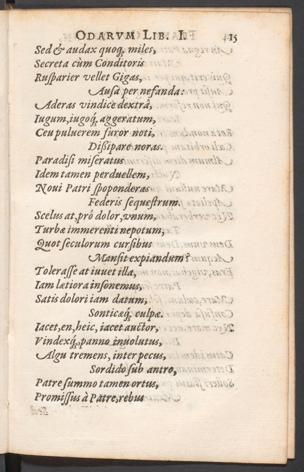 ODARVM LIB. I. 15
Sed & audax quoq, miles,
Secreta cùm Conditoris
Rusparier vellet Gigas,
Ausa per nefanda:
Aderas vindice dextrâ,
Iugum, iugoq́, aggeratum,
Ceu puluerem furor noti,
Dißipare noras.
Paradisi miseratus
Idem tamen perduellem,
Noui Patri spoponderas
Federis sequestrum.
Scelus at, pró dolor, vnum,
Turbæ immerenti nepotum,
Quot seculorum cursibus
Mansit expiandum?
Tolerasse at iuuet illa,
Iam lætiora insonemus,
Satis dolori iam datum,
Sonticæq́, culpæ.
Iacet, en, heic, iacet auctor,
Vindexq́, panno inuolutus,
Algu tremens, inter pecus,
Sordido sub antro,
Patre summo tamen ortus,
Promissus à Patre, rebus
Sed